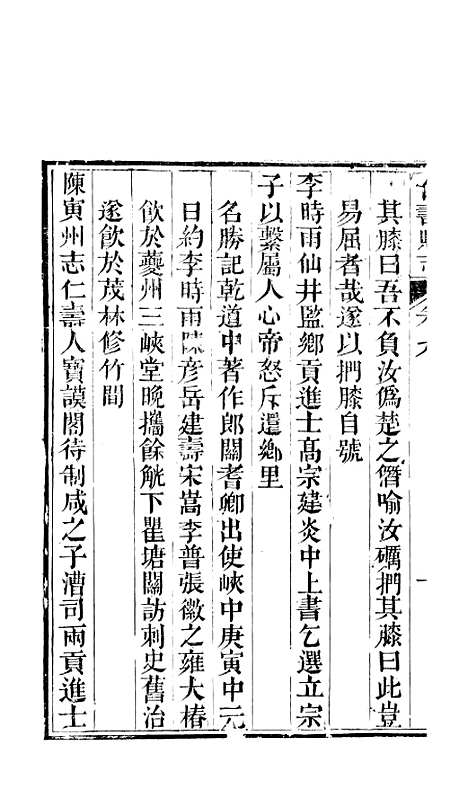 仁壽縣志 卷六
其膝曰吾不負汝僞楚之僭喻汝礪捫其膝曰此豈
易屈者哉遂以捫膝自號
李時雨仙井監鄉貢進士高宗建炎中上書乞選立宗
子以繫屬人心帝怒斥還鄉里
名勝記乾道中著作郎關耆卿出使峽中庚寅中元
日約李時雨陳彥岳建壽宋嵩李普張徽之雍大椿
飲於夔州三峽堂晚攜餘觥下瞿塘關訪刺史舊治
遂飲於茂林修竹間
陳寅州志仁壽人寶謨閣待制咸之子漕司兩貢進士